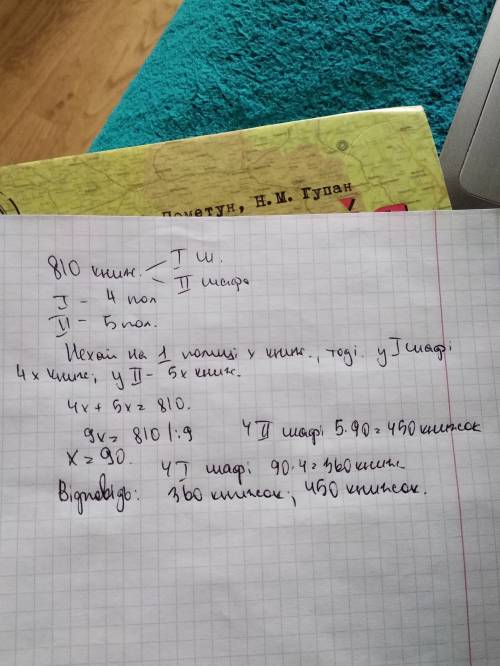 Пометун, Н.М. Гупан
810 книж. I ш.
II шафа
I - 4 пол
II - 5 пол.
Нехай на 1 полиці x книж., тоді у I шафі
4x книж, у II - 5x книж.
4x + 5x = 810.
9x = 810 |:9
У II шафі 5·90=450 книжок
x = 90.
У I шафі 90·4=360 книж
Відповідь: 360 книжок; 450 книжок.